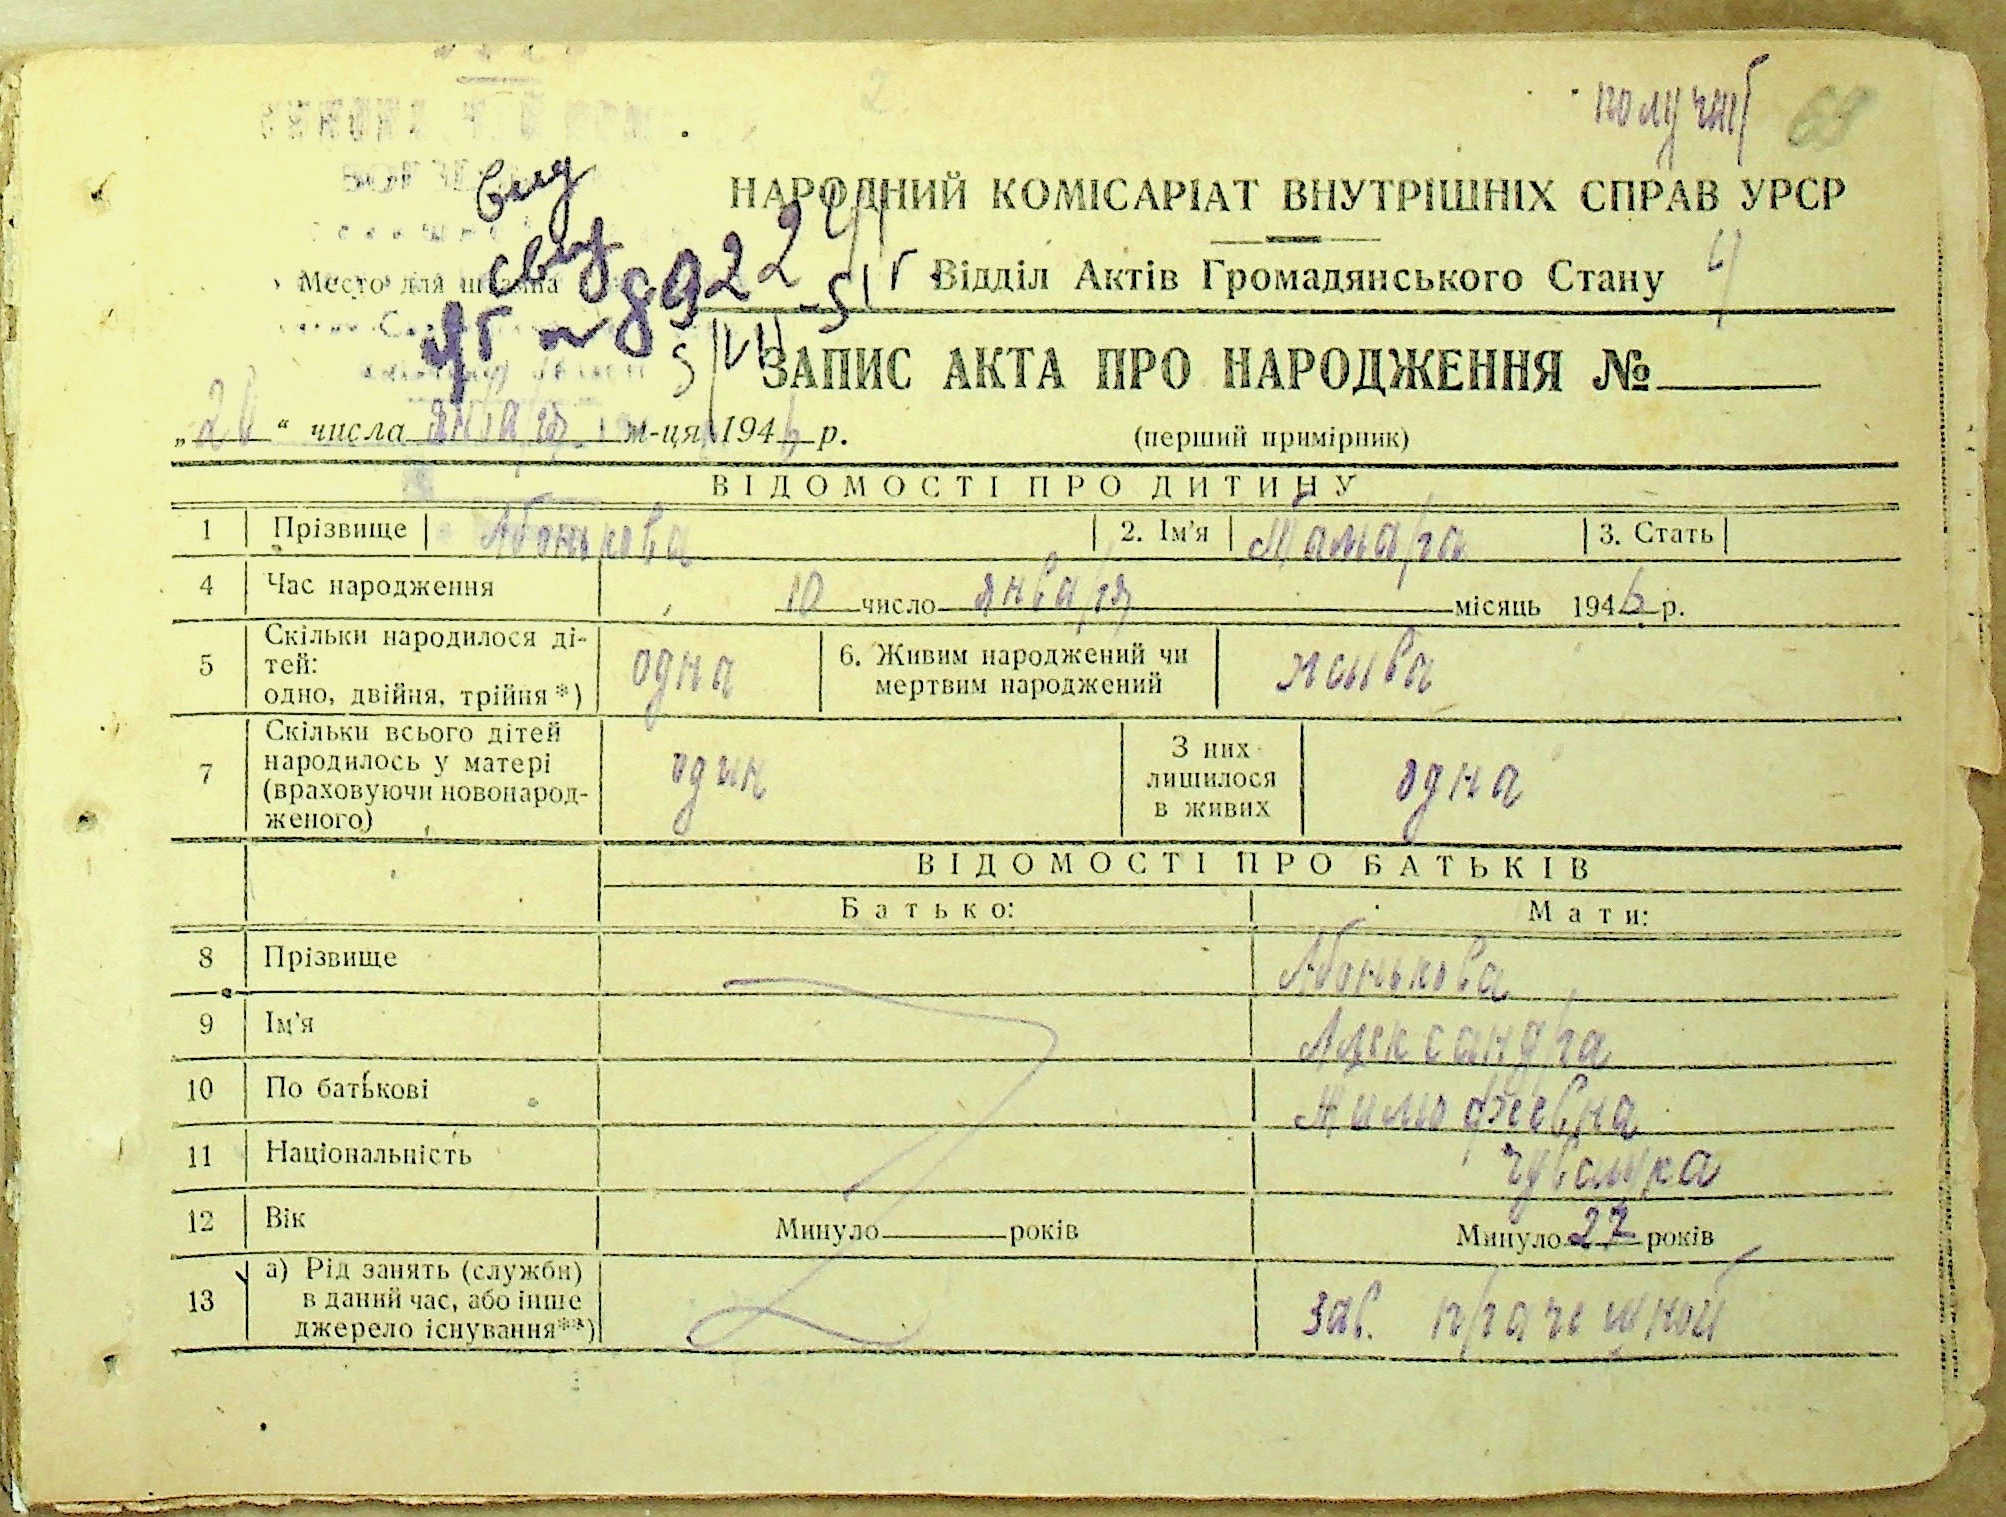 получив 69
НАРОДНИЙ КОМІСАРІАТ ВНУТРІШНІХ СПРАВ УРСР
вид
свид
Место для штампа
Відділ Актів Громадянського Стану
№ 8922
ЗАПИС АКТА ПРО НАРОДЖЕННЯ №
„ “ числа января м-ця 1946 р.
(перший примірник)
ВІДОМОСТІ ПРО ДИТИНУ
1 Прізвище Абонькова 2. Ім'я Тамара 3. Стать
4 Час народження 10 число января місяць 1946 р.
5 Скільки народилося ді-
тей:
одно, двійня, трійня*) одна 6. Живим народжений чи
мертвим народжений жива
7 Скільки всього дітей
народилось у матері
(враховуючи новонарод-
женого) один З них
лишилося
в живих одна
ВІДОМОСТІ ПРО БАТЬКІВ
Батько: Мати:
8 Прізвище Абонькова
9 Ім'я Александра
10 По батькові Тимофеевна
11 Національність чувашка
12 Вік Минуло років Минуло 22 років
13 а) Рід занять (служби)
в даний час, або інше
джерело існування**) зав. прачешной